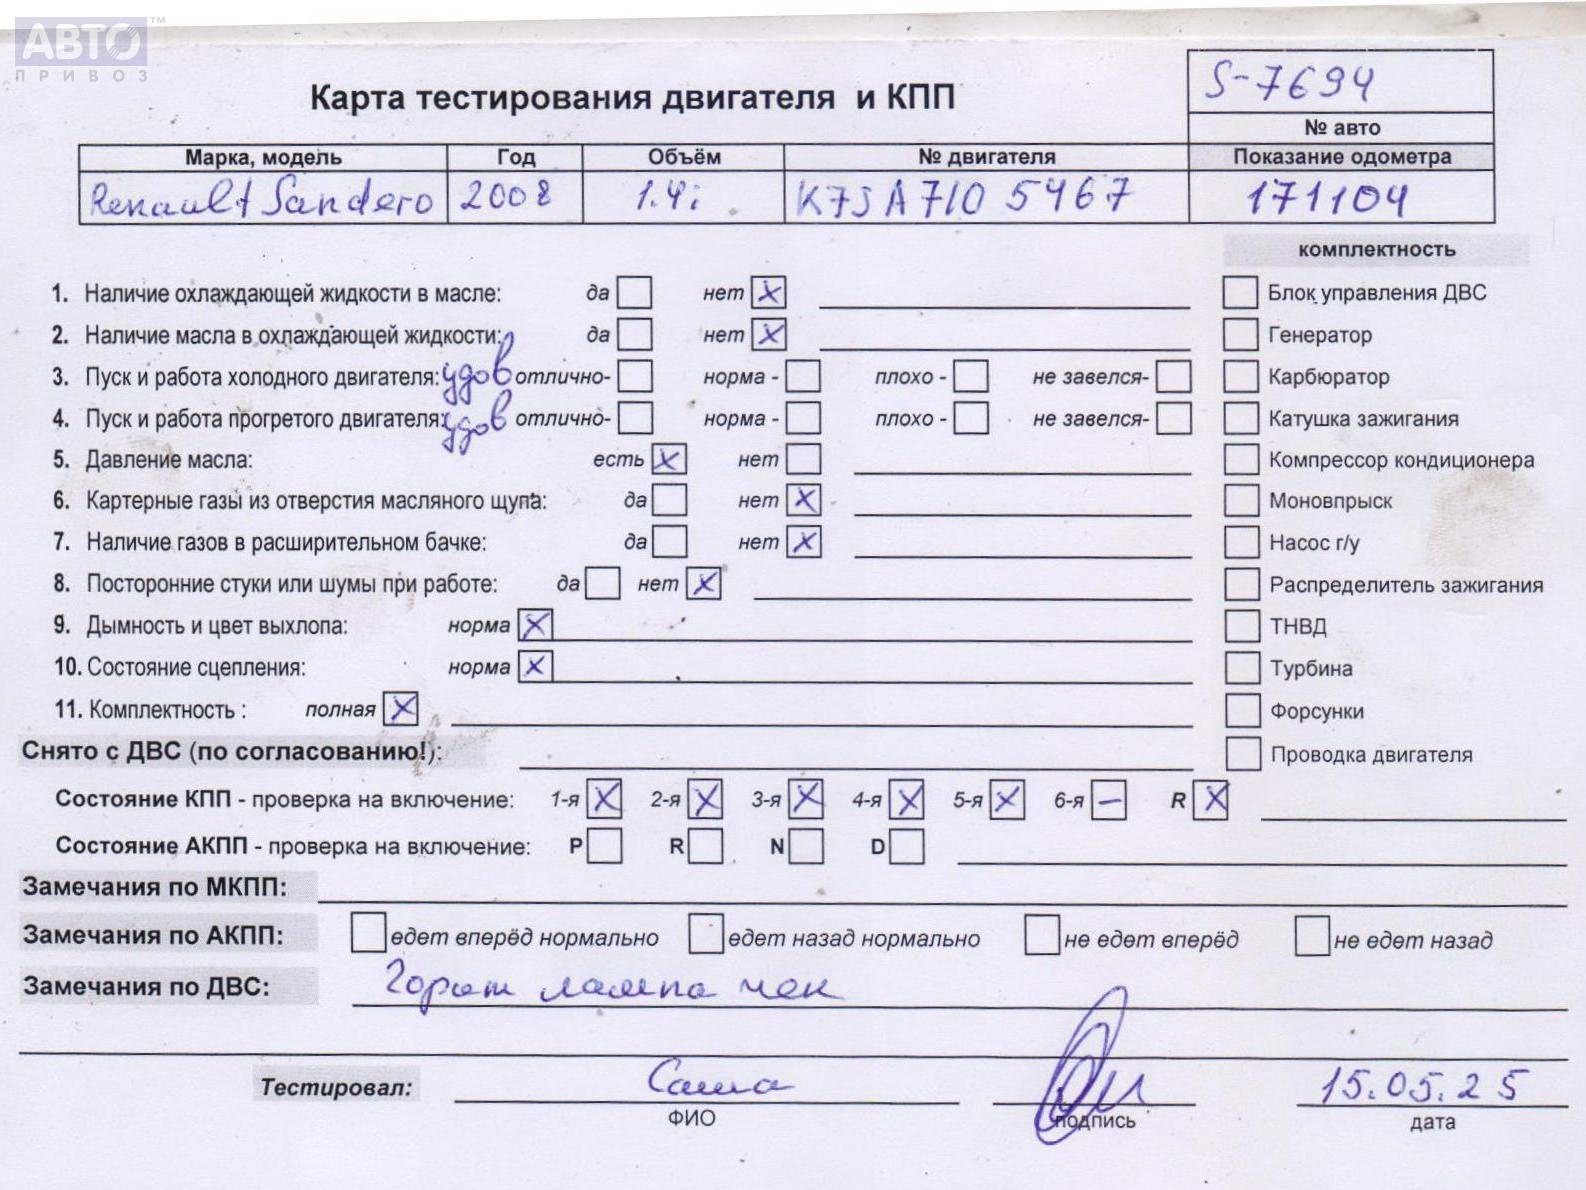 АВТО™
ПРИВОЗ
S-7694
Карта тестирования двигателя и КПП
№ авто
Марка, модель Год Объём № двигателя Показание одометра
Renault Sandero 2008 1.4i K7JA710 5467 171104
комплектность
1. Наличие охлаждающей жидкости в масле: да нет X Блок управления ДВС
2. Наличие масла в охлаждающей жидкости: да нет X Генератор
3. Пуск и работа холодного двигателя: удов отлично- норма - плохо - не завелся- Карбюратор
4. Пуск и работа прогретого двигателя: удов отлично- норма - плохо - не завелся- Катушка зажигания
5. Давление масла: есть X нет Компрессор кондиционера
6. Картерные газы из отверстия масляного щупа: да нет X Моновпрыск
7. Наличие газов в расширительном бачке: да нет X Насос г/у
8. Посторонние стуки или шумы при работе: да нет X Распределитель зажигания
9. Дымность и цвет выхлопа: норма X ТНВД
10. Состояние сцепления: норма X Турбина
11. Комплектность : полная X Форсунки
Снято с ДВС (по согласованию!): Проводка двигателя
Состояние КПП - проверка на включение: 1-я X 2-я X 3-я X 4-я X 5-я X 6-я – R X
Состояние АКПП - проверка на включение: P R N D
Замечания по МКПП:
Замечания по АКПП: едет вперёд нормально едет назад нормально не едет вперёд не едет назад
Замечания по ДВС: Горит лампа чек
Тестировал: Саша 15.05.25
ФИО подпись дата